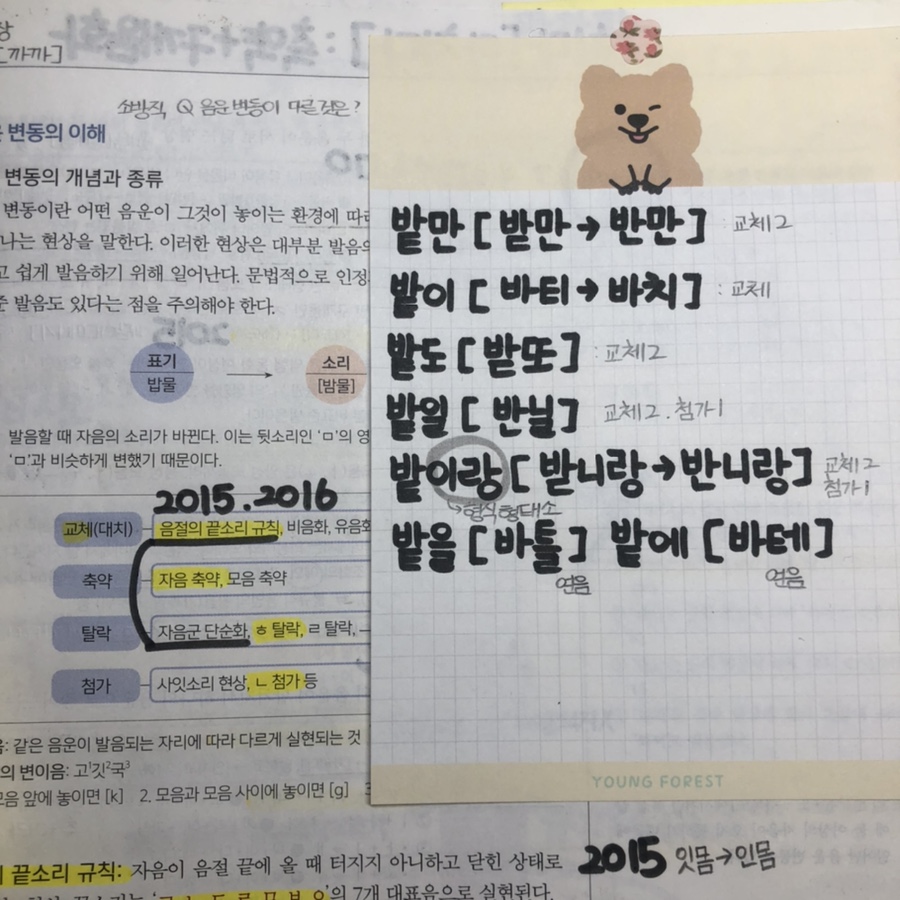 상
[까까]
소방직, Q 음운변동이 다른것은?
변동의 이해
변동의 개념과 종류
변동이란 어떤 음운이 그것이 놓이는 환경에 따라
나는 현상을 말한다. 이러한 현상은 대부분 발음의
고 쉽게 발음하기 위해 일어난다. 문법적으로 인정
준 발음도 있다는 점을 주의해야 한다.
표기
밥물
소리
[밤물]
발음할 때 자음의 소리가 바뀐다. 이는 뒷소리인 ‘ㅁ’의 영
‘ㅁ’과 비슷하게 변했기 때문이다.
2015.2016
교체(대치) 음절의 끝소리 규칙, 비음화, 유음화
축약 자음 축약, 모음 축약
탈락 자음군 단순화, ㅎ 탈락, ㄹ 탈락,
첨가 사잇소리 현상, ㄴ 첨가 등
음: 같은 음운이 발음되는 자리에 따라 다르게 실현되는 것
의 변이음: 고¹깃²국³
모음 앞에 놓이면 [k] 2. 모음과 모음 사이에 놓이면 [g] 3
끝소리 규칙: 자음이 음절 끝에 올 때 터지지 아니하고 닫힌 상태로
의 7개 대표음으로 실현된다.
밭만 [받만→반만] : 교체2
밭이 [바티→바치] : 교체1
밭도 [받또] : 교체2
밭일 [반닐] 교체2. 첨가1
밭이랑 [받니랑→반니랑] 교체2
첨가1
↳형식형태소
밭을 [바틀] 밭에 [바테]
연음 연음
YOUNG FOREST
2015 잇몸→인몸